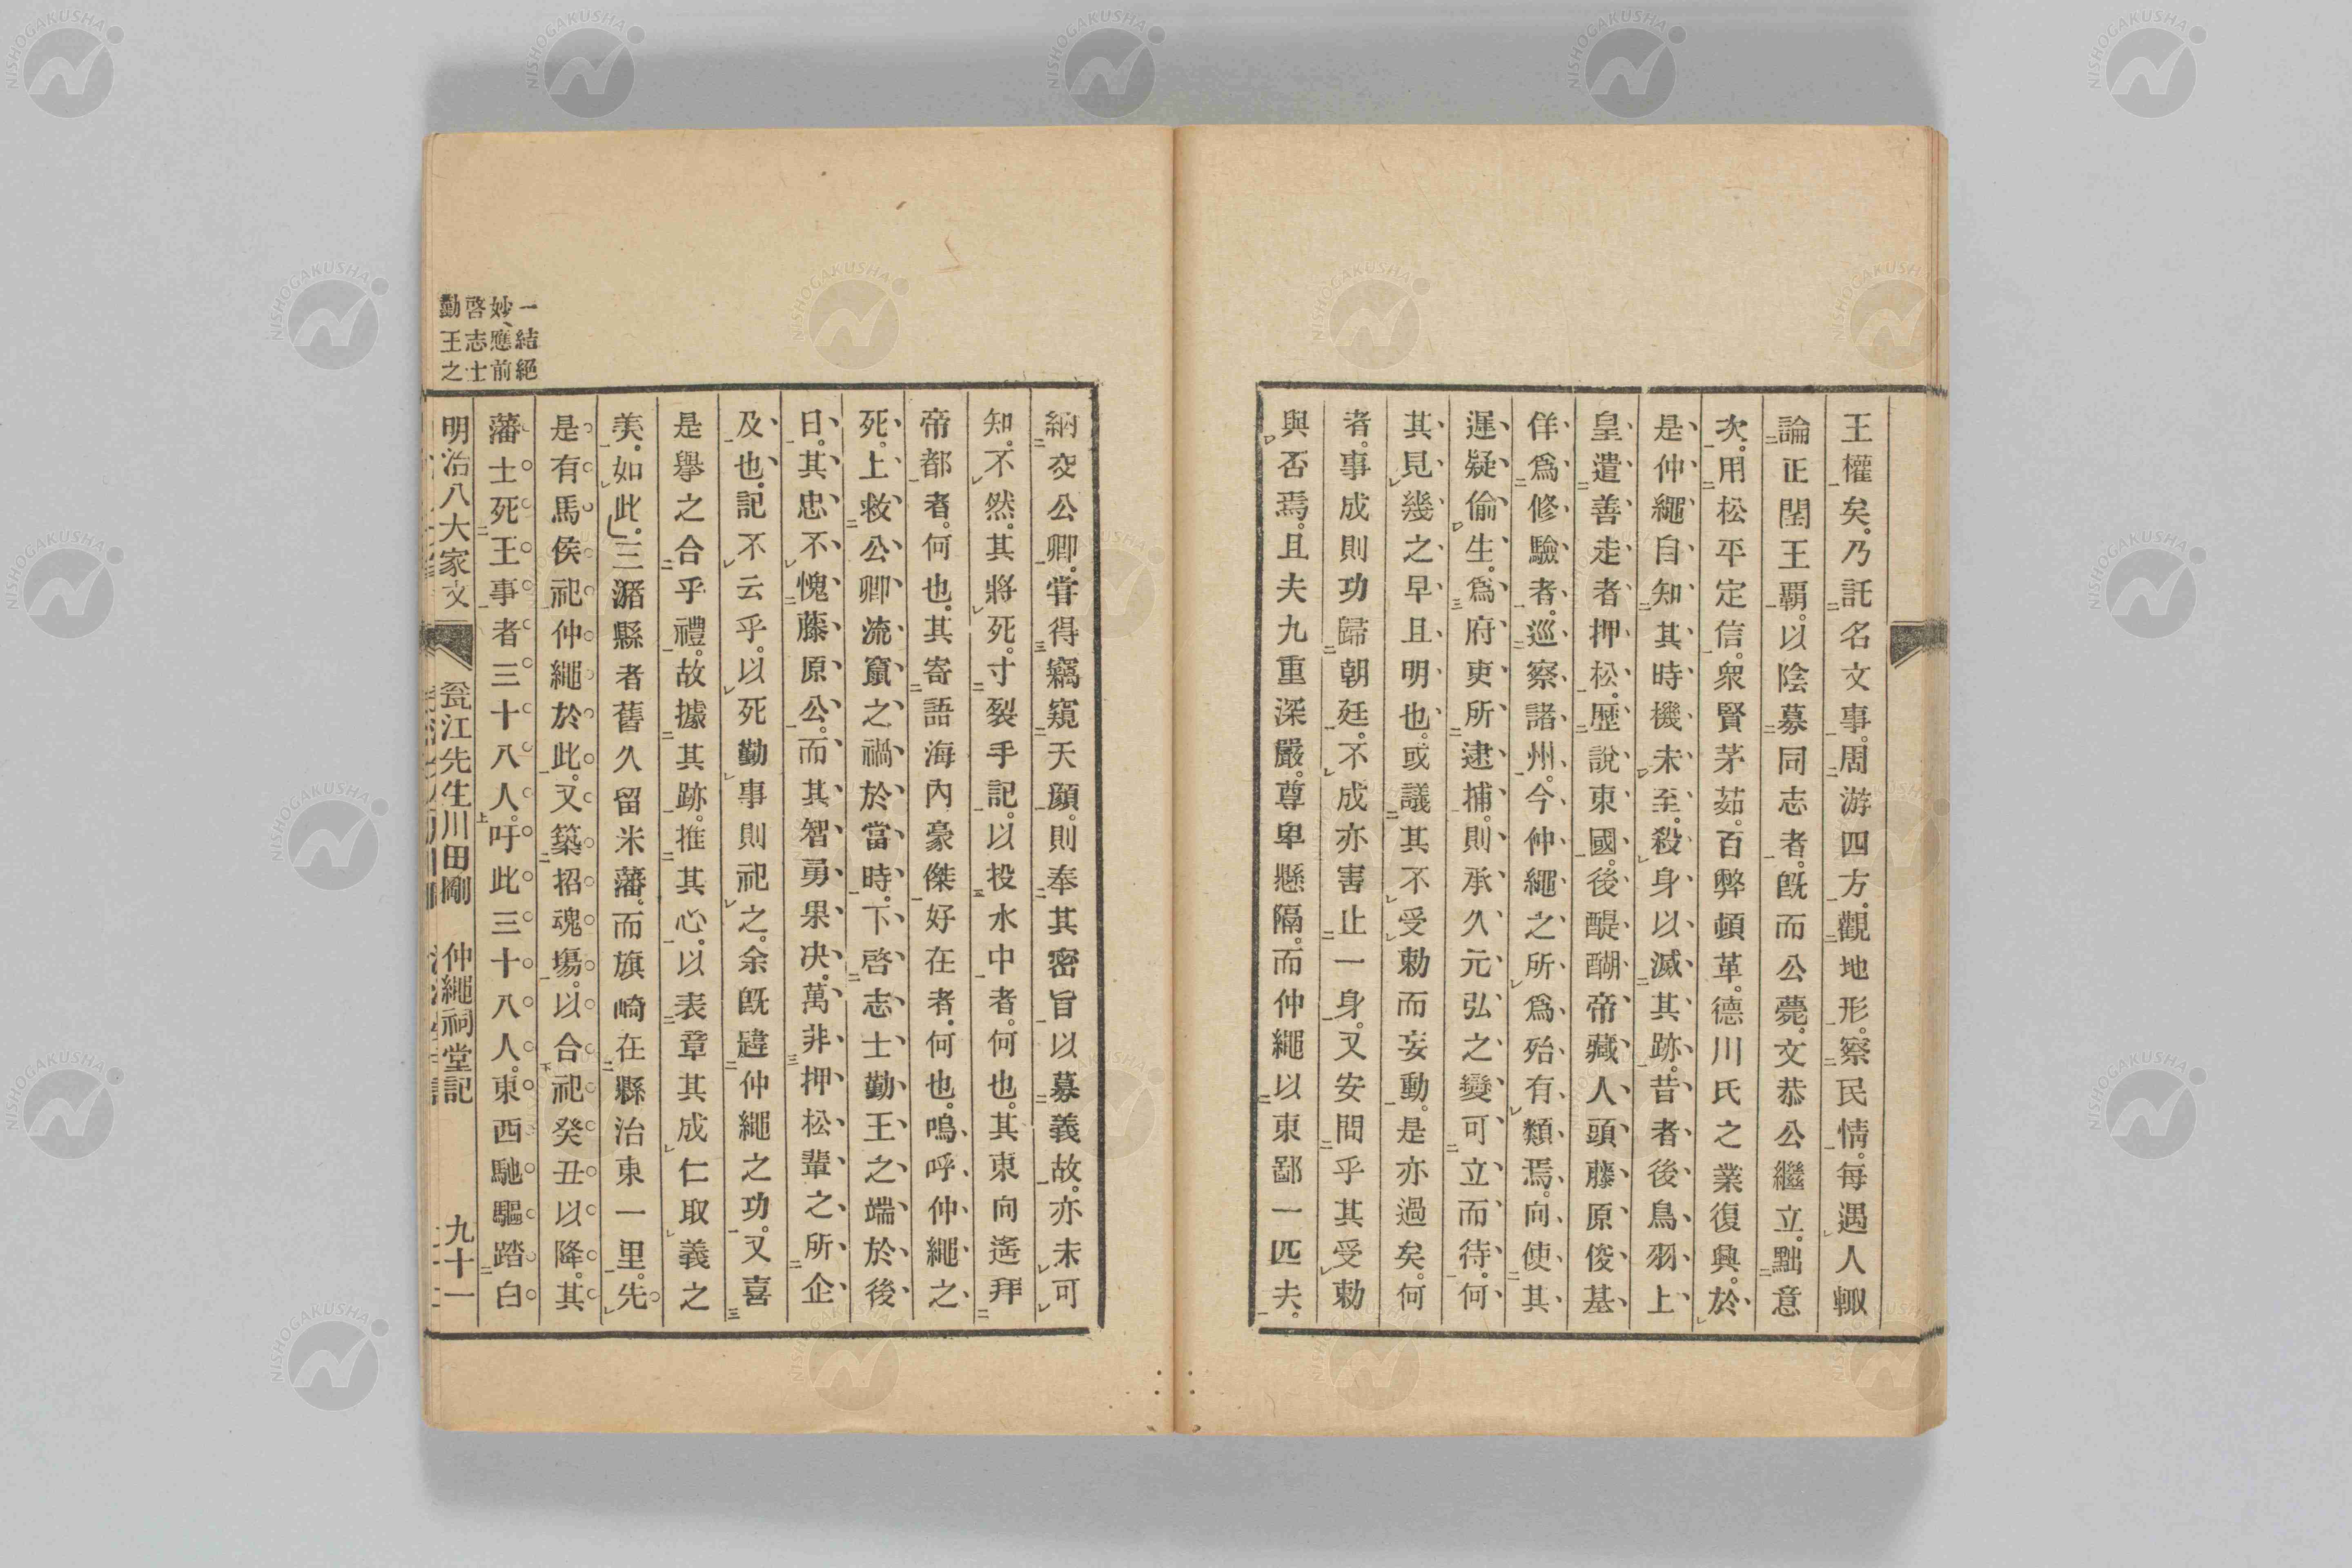 王權矣。乃託名文事。周游四方。觀地形。察民情。每遇人輙
論正閏王覇。以陰募同志者。既而公薨。文恭公繼立。黜意
次。用松平定信。衆賢茅茹。百弊頓革。德川氏之業復興。於
是仲繩自知其時機未至。殺身以滅其跡。昔者後鳥羽上
皇遣善走者押松。歷說東國。後醍醐帝藏人頭藤原俊基
佯爲修驗者。巡察諸州。今仲繩之所爲殆有類焉。向使其
遲疑偷生。爲府吏所逮捕。則承久元弘之變可立而待。何
其見幾之早且明也。或議其不受勅而妄動。是亦過矣。何
者。事成則功歸朝廷。不成亦害止一身。又安問乎其受勅
與否焉。且夫九重深嚴。尊卑懸隔。而仲繩以東鄙一匹夫。
納交公卿。嘗得竊窺天顏。則奉其密旨以募義故。亦未可
知。不然。其將死。寸裂手記。以投水中者。何也。其東向遙拜
帝都者。何也。其寄語海內豪傑好在者。何也。嗚呼仲繩之
死。上救公卿流竄之禍於當時。下啓志士勤王之端於後
日。其忠不愧藤原公。而其智勇果決。萬非押松輩之所企
及也。記不云乎。以死勤事則祀之。余既韙仲繩之功。又喜
是擧之合乎禮。故據其跡。推其心。以表章其成仁取義之
美。如此。三潴縣者舊久留米藩。而旗崎在縣治東一里。先
是有馬侯祀仲繩於此。又築招魂場。以合祀癸丑以降。其
藩士死王事者三十八人。吁此三十八人。東西馳驅踏白
一結絕
妙、應前
啓志士
勤王之
明治八大家文 瓮江先生川田剛 仲繩祠堂記 九十一
NISHOGAKUSHA